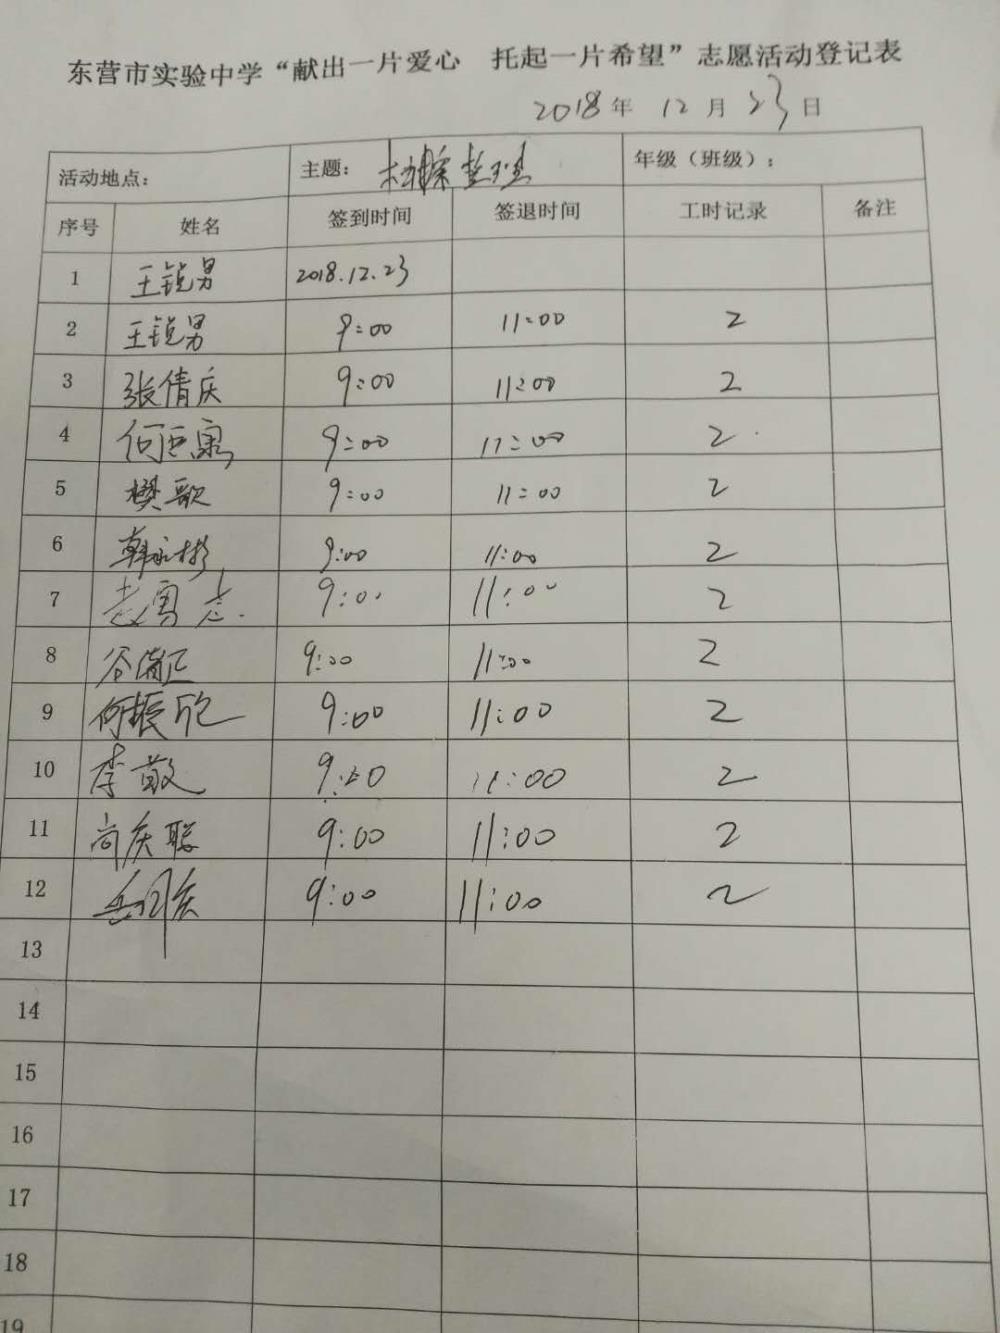 东营市实验中学“献出一片爱心 托起一片希望”志愿活动登记表
2018年 12月 23日
活动地点： 主题： 年级（班级）：
序号 姓名 签到时间 签退时间 工时记录 备注
1 王锐男 2018.12.23
2 王锐男 9:00 11:00 2
3 张倩庆 9:00 11:00 2
4 9:00 11:00 2
5 樊歌 9:00 11:00 2
6 韩永彬 9:00 11:00 2
7 9:00 11:00 2
8 9:00 11:00 2
9 何振欣 9:00 11:00 2
10 李敬 9:00 11:00 2
11 尚庆聪 9:00 11:00 2
12 9:00 11:00 2
13
14
15
16
17
18
19